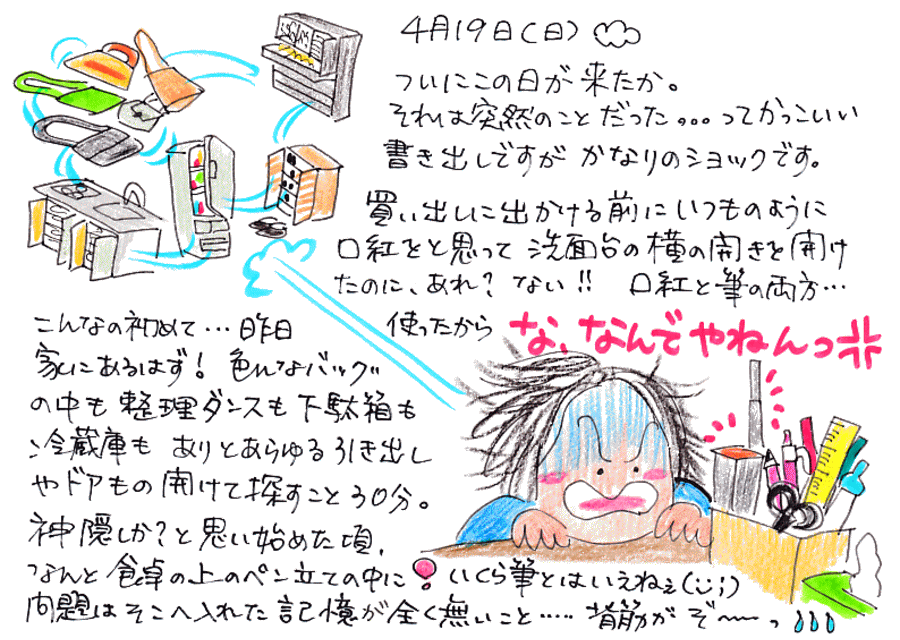 4月19日(日)
ついにこの日が来たか。
それは突然のことだった...ってかっこいい
書き出しですがかなりのショックです。
買い出しに出かける前にいつものように
口紅をと思って洗面台の横の開きを開け
たのに、あれ?ない!!口紅と筆の両方…
こんなの初めて…昨日使ったから
な、なんでやねんっ
家にあるはず!色んなバッグ
の中も整理ダンスも下駄箱も
冷蔵庫もありとあらゆる引き出し
やドアもの開けて探すこと30分。
神隠しか?と思い始めた頃、
なんと食卓の上のペン立ての中に!いくら筆とはいえねぇ(;)
問題はそこへ入れた記憶が全く無いこと……背筋がぞ〜〜っ